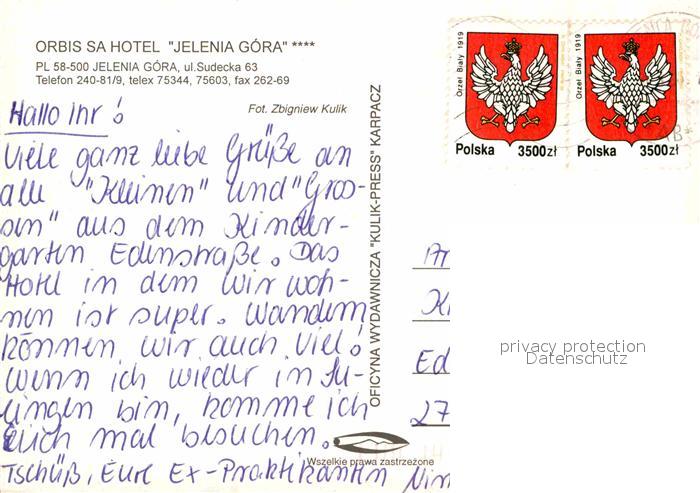 ORBIS SA HOTEL "JELENIA GÓRA" ****
PL 58-500 JELENIA GÓRA, ul.Sudecka 63
Telefon 240-81/9, telex 75344, 75603, fax 262-69
Fot. Zbigniew Kulik
Hallo Ihr!
Viele ganz liebe Grüße an
alle "Kleinen" und "Gros-
sen" aus dem Kinder-
garten Edenstraße. Das
Hotel in dem wir woh-
nen ist super. Wandern
können wir auch viel!
Wenn ich wieder in Su-
lingen bin, komme ich
Euch mal besuchen.
Tschüß, Eure Ex-Praktikanten
OFICYNA WYDAWNICZA "KULIK-PRESS" KARPACZ
Wszelkie prawa zastrzeżone
Orzeł Biały 1919
Polska 3500zł
Orzeł Biały 1919
Polska 3500zł
Ed
27
privacy protection
Datenschutz